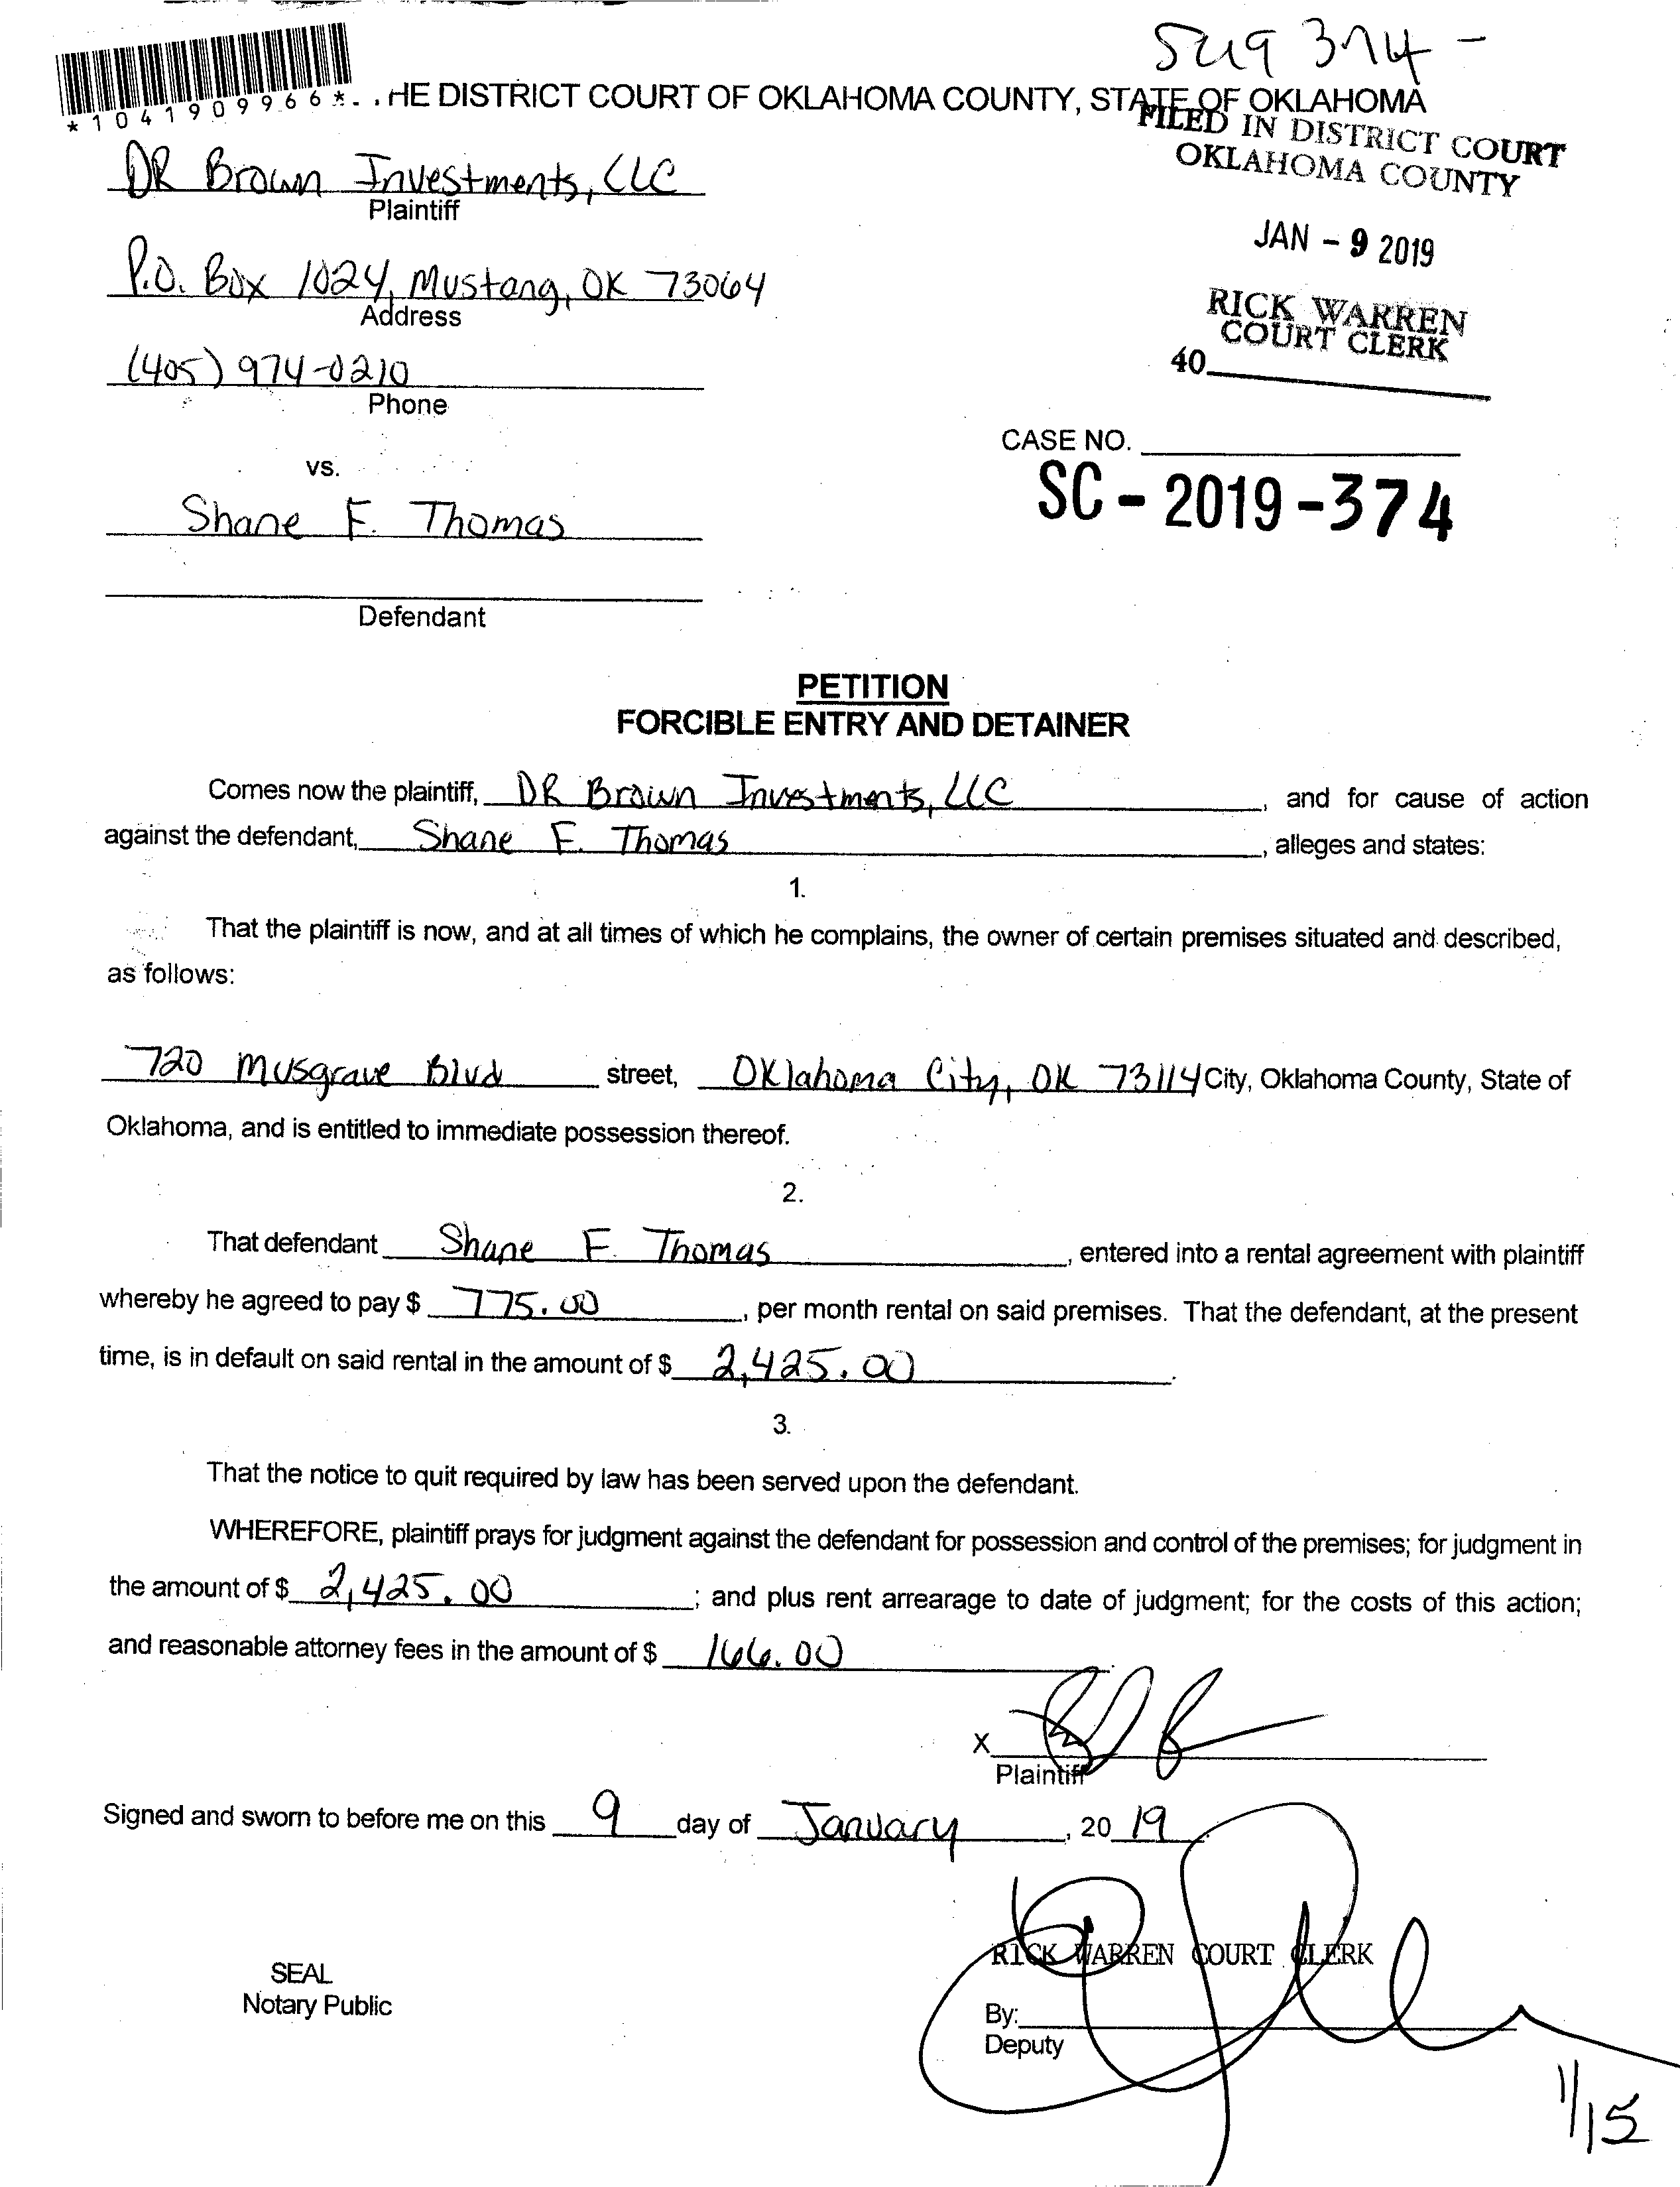 374 -
*1041909966*
HE DISTRICT COURT OF OKLAHOMA COUNTY, STATE OF OKLAHOMA
FILED IN DISTRICT COURT
OKLAHOMA COUNTY
JAN - 9 2019
RICK WARREN
COURT CLERK
40
DR Brown Investments, LLC
Plaintiff
P.O. Box 1024, Mustang, OK 73064
Address
(405) 974-0210
Phone
CASE NO.
SC - 2019 - 374
vs.
Shane F. Thomas
Defendant
PETITION
FORCIBLE ENTRY AND DETAINER
Comes now the plaintiff, DR Brown Investments, LLC, and for cause of action
against the defendant, Shane F. Thomas, alleges and states:
1.
That the plaintiff is now, and at all times of which he complains, the owner of certain premises situated and described,
as follows:
720 Musgrave Blvd street, Oklahoma City, OK 73114 City, Oklahoma County, State of
Oklahoma, and is entitled to immediate possession thereof.
2.
That defendant Shane F. Thomas, entered into a rental agreement with plaintiff
whereby he agreed to pay $ 775.00, per month rental on said premises. That the defendant, at the present
time, is in default on said rental in the amount of $ 2,425.00.
3.
That the notice to quit required by law has been served upon the defendant.
WHEREFORE, plaintiff prays for judgment against the defendant for possession and control of the premises; for judgment in
the amount of $ 2,425.00; and plus rent arrearage to date of judgment; for the costs of this action;
and reasonable attorney fees in the amount of $ 166.00.
X
Plaintiff
Signed and sworn to before me on this 9 day of January, 20 19
RICK WARREN COURT CLERK
SEAL
Notary Public
By:
Deputy
1/15